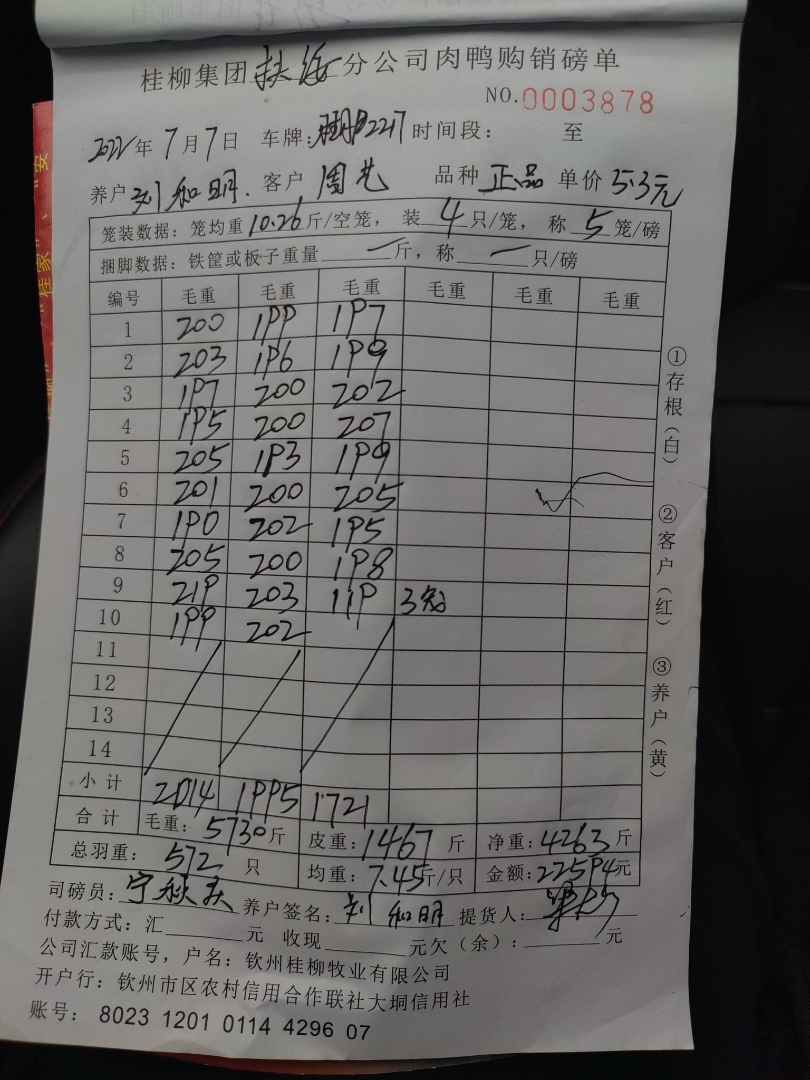 桂柳集团扶绥分公司肉鸭购销磅单
NO.0003878
2022年7月7日 车牌: 时间段: 至
养户刘和明. 客户 周艺 品种 正品 单价 5.3元
笼装数据: 笼均重10.26斤/空笼, 装4只/笼, 称5笼/磅
捆脚数据: 铁筐或板子重量一斤, 称一只/磅
编号 毛重 毛重 毛重 毛重 毛重 毛重
1 200 199 197
2 203 196 199
3 197 200 202
4 195 200 207
5 205 193 199
6 201 200 205
7 190 202 195
8 205 200 198
9 219 203 119 3笼
10 199 202
11
12
13
14
小计 2014 1995 1721
合计 毛重: 5730斤 皮重: 1467斤 净重: 4263斤
总羽重: 572只 均重: 7.45斤/只 金额: 22594元
司磅员: 养户签名: 刘和明 提货人:
付款方式: 汇 元 收现 元欠(余): 元
公司汇款账号, 户名: 钦州桂柳牧业有限公司
开户行: 钦州市区农村信用合作联社大垌信用社
账号: 8023 1201 0114 4296 07
①存根(白)
②客户(红)
③养户(黄)